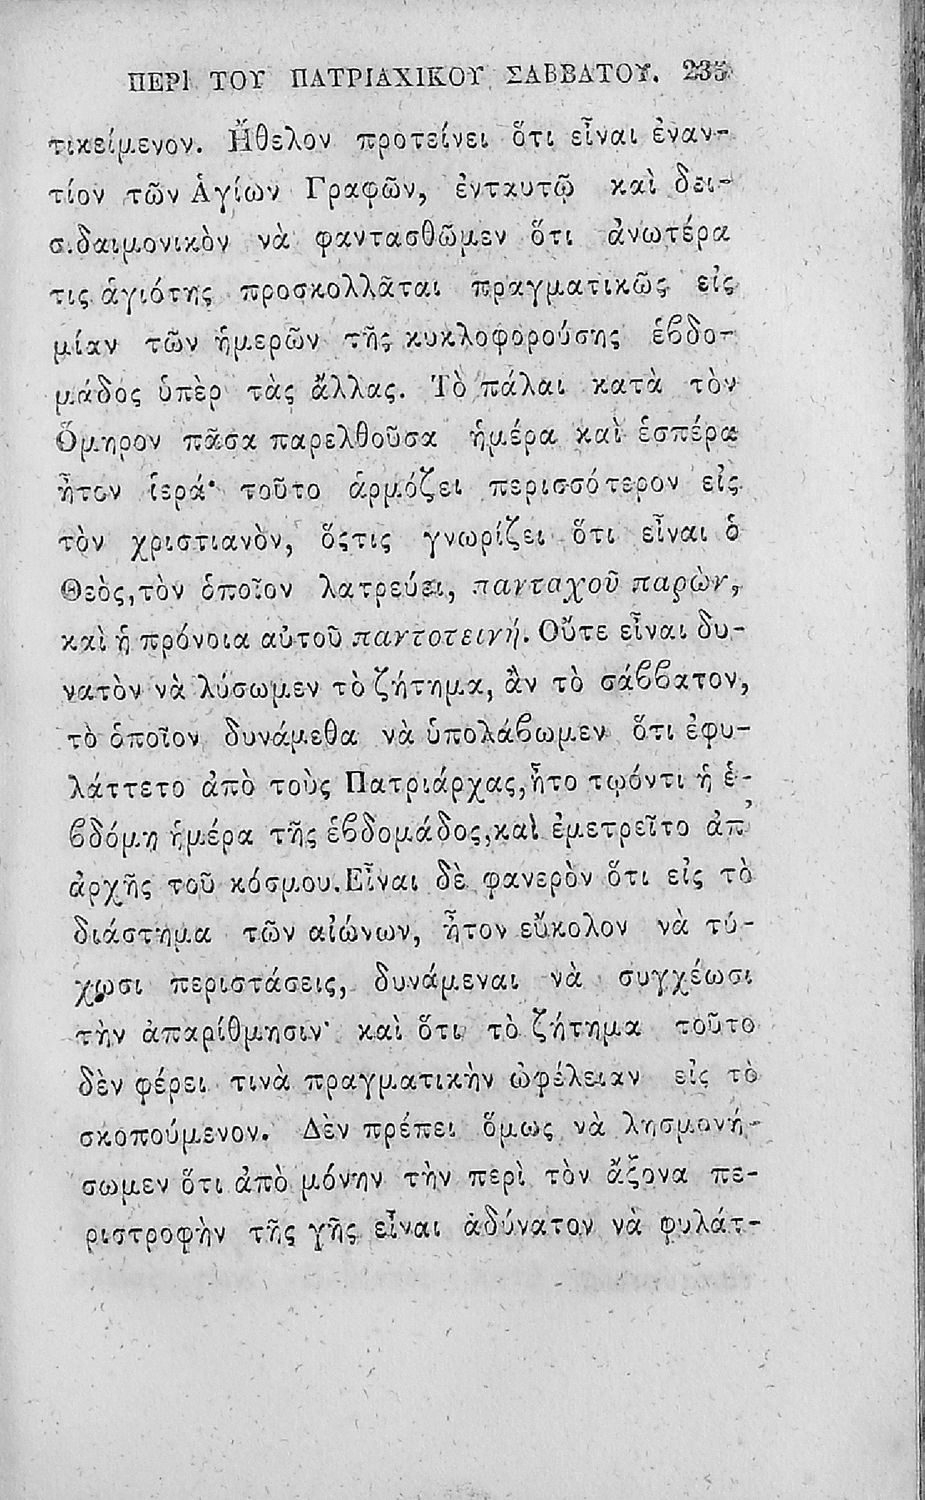 ΠΕΡΙ ΤΟΥ ΠΑΤΡΙΑΧΙΚΟΥ ΣΑΒΒΑΤΟΥ. 235
τικείμενον. Ἤθελον προτείνει ὅτι εἶναι ἐναν-
τίον τῶν Ἁγίων Γραφῶν, ἐνταυτῷ καὶ δει-
σ.δαιμονικὸν νὰ φαντασθῶμεν ὅτι ἀνωτέρα
τις ἁγιότης προσκολλᾶται πραγματικῶς εἰς
μίαν τῶν ἡμερῶν τῆς κυκλοφορούσης ἑβδο-
μάδος ὑπὲρ τὰς ἄλλας. Τὸ πάλαι κατὰ τὸν
Ὅμηρον πᾶσα παρελθοῦσα ἡμέρα καὶ ἑσπέρα
ἦτον ἱερά· τοῦτο ἁρμόζει περισσότερον εἰς
τὸν χριστιανὸν, ὅςτις γνωρίζει ὅτι εἶναι ὁ
Θεὸς, τὸν ὁποῖον λατρεύει, πανταχοῦ παρὼν,
καὶ ἡ πρόνοια αὐτοῦ παντοτεινή. Οὔτε εἶναι δυ-
νατὸν νὰ λύσωμεν τὸ ζήτημα, ἂν τὸ σάββατον,
τὸ ὁποῖον δυνάμεθα νὰ ὑπολάβωμεν ὅτι ἐφυ-
λάττετο ἀπὸ τοὺς Πατριάρχας, ἦτο τῳόντι ἡ ἑ-
βδόμη ἡμέρα τῆς ἑβδομάδος, καὶ ἐμετρεῖτο ἀπ᾽
ἀρχῆς τοῦ κόσμου. Εἶναι δὲ φανερὸν ὅτι εἰς τὸ
διάστημα τῶν αἰώνων, ἦτον εὔκολον νὰ τύ-
χωσι περιστάσεις, δυνάμεναι νὰ συγχέωσι
τὴν ἀπαρίθμησιν· καὶ ὅτι τὸ ζήτημα τοῦτο
δὲν φέρει τινὰ πραγματικὴν ὠφέλειαν εἰς τὸ
σκοπούμενον. Δὲν πρέπει ὅμως νὰ λησμονή-
σωμεν ὅτι ἀπὸ μόνην τὴν περὶ τὸν ἄξονα πε-
ριστροφὴν τῆς γῆς εἶναι ἀδύνατον νὰ φυλάτ-